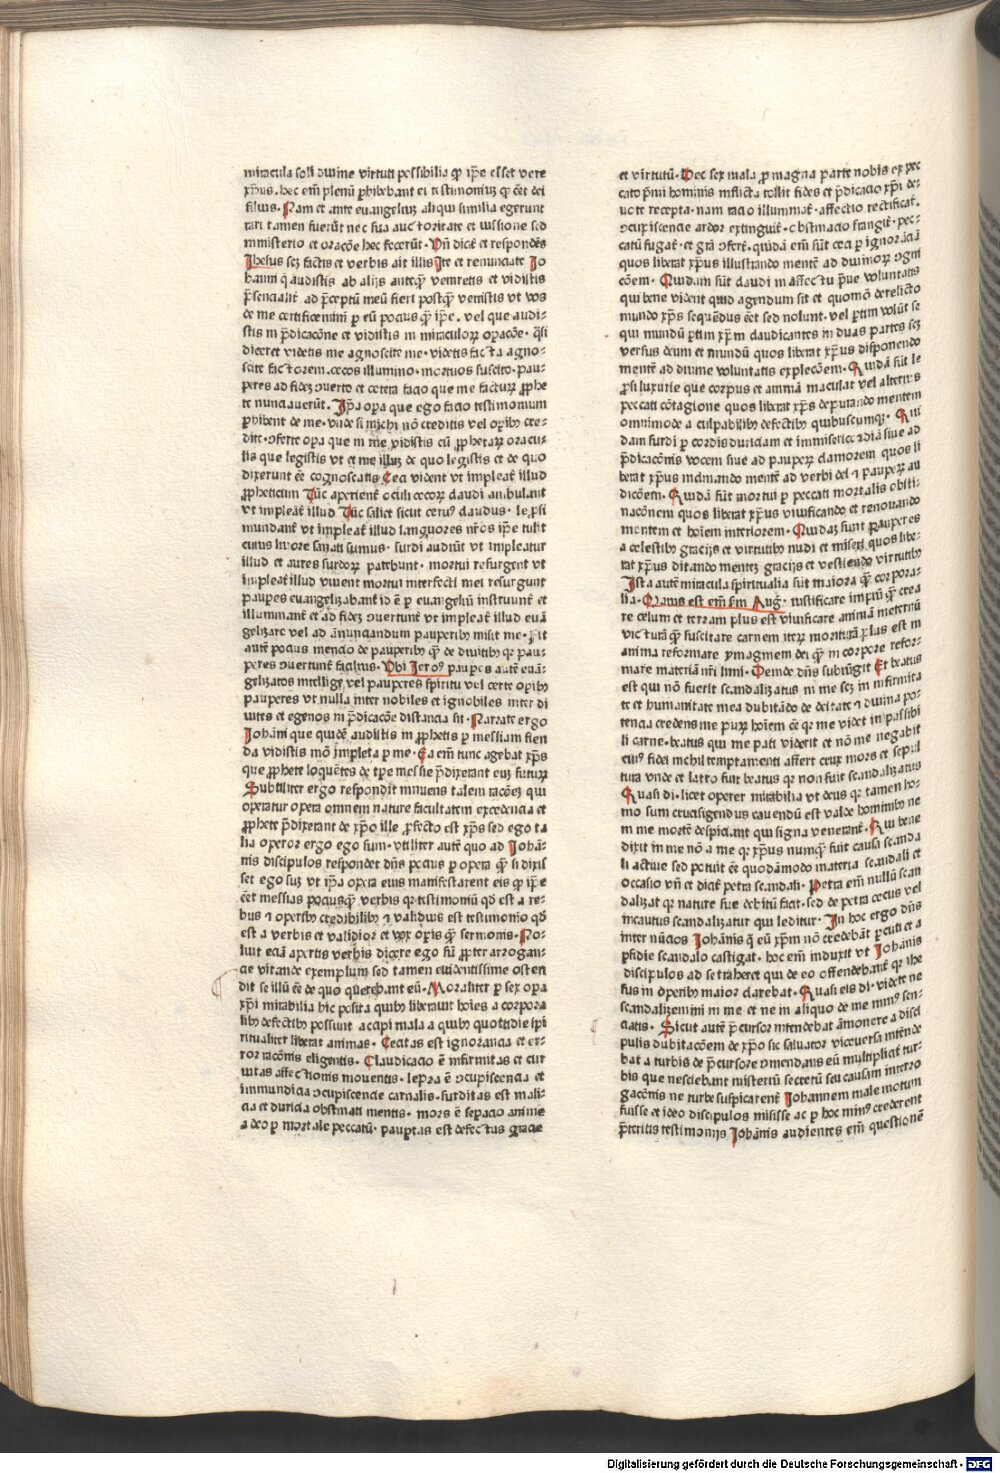 miracula soli diuine virtuti possibilia ꝙ ip̄e esset vere
xp̄us. hec em̄ plenū ꝓhibebant ei testimoniuꝫ ꝙ eēt dei
filius. Nam et ante euangeliuꝫ aliqui similia egerunt
rari tamen fuerūt nec sua auctoritate et iussione sed
ministerio et oracōne hec fecerūt. Vn̄ dicit̄ et respondēs
Jhesus scꝫ factis et verbis ait illis Ite et renunciate Jo
hanni q̄ audistis ab alijs anteqꝫ veniretis et vidistis
p̄sencialit̄ ad p̄ceptū meū fieri postqꝫ venistis vt vos
de me certificemini ꝑ eū pocius qꝫ ip̄e. vel que audi⸗
stis in p̄dicacōne et vidistis in miraculoꝝ oꝑacōe. q̄si
diceret videtis me agnoscite me. videtis facta agno⸗
scite factorem. cecos illumino. mortuos suscito. pau⸗
peres ad fidez ↄuerto et cetera facio que me facturꝫ ꝓphe
te nunciauerūt. Ip̄a oꝑa que ego facio testimonium
ꝑhibent de me. vnde si michi nō creditis vel oꝑibꝰ cre⸗
dite. ↄferte oꝑa que in me vidistis cū ꝓphetaꝝ oracu⸗
lis que legistis vt et me illuꝫ de quo legistis et de quo
dixerunt eē cognoscatis Ceci vident vt impleat̄ illud
ꝓpheticum Tūc aperient̄ oculi cecoꝝ claudi ambulant
vt impleat̄ illud Tūc saliet sicut ceruꝰ claudus. leꝓsi
mundant̄ vt impleat̄ illud languores nr̄os ip̄e tulit
cuius liuore sanati sumus. surdi audiūt vt impleatur
illud et aures surdoꝝ patebunt. mortui resurgent vt
impleat̄ illud viuent mortui interfecti mei resurgunt
pauꝑes euangelizabant̄ id ē ꝑ euangeliū instruunt̄ et
illuminant̄ et ad fidez ↄuertunt̄ vt impleat̄ illud euā
gelizare vel ad ānunciandum pauꝑibꝰ misit me. Fit
autē pocius mencio de pauꝑibꝰ qꝫ de diuitibꝰ qꝛ pau⸗
peres ↄuertunt̄ facilius. Vbi Jeroꝰ pauꝑes autē euā⸗
gelizatos intellige vel pauꝑeres spiritu vel certe opibꝰ
pauperes vt nulla inter nobiles et ignobiles inter di
uites et egenos in p̄dicacōe distancia sit. Narrate ergo
Johāni que quidē audistis in ꝓphetis ꝑ messiam fien
da vidistis mō impleta ꝑ me. Ea em̄ tunc agebat xp̄s
que ꝓphete loquētes de tꝑe messie p̄dixerant euꝫ futurꝫ
Subtiliter ergo respondit innuens talem racōeꝫ qui
operatur opera omnem nature facultatem excedencia et
ꝓphete p̄dixerant de xp̄o ille ꝓfecto est xp̄s sed ego ta
lia operor ergo ego sum. vtiliter autē quo ad Johā⸗
nis discipulos respondet dn̄s pocius ꝑ opera qꝫ si dixis
set ego suꝫ vt ip̄a opera eius manifestarent eis ꝙ ip̄e
eēt messias pociusqꝫ verbis qꝛ testimoniū qd̄ est a re⸗
bus ⁊ operibꝰ credibiliꝰ ⁊ validius est testimonio qd̄
est a verbis et validior et vox oꝑis qꝫ sermonis. No⸗
luit eciā apertis verbis dicere ego sū ꝓpter arrogan⸗
cie vitande exemplum sed tamen euidentissime osten
dit se illū eē de quo querebant eū. Moraliter ꝑ sex oꝑa
xp̄i mirabilia hic posita quibꝰ liberauit hoīes a corpora
libꝰ defectibꝰ possunt accipi mala a quibꝰ quottidie spi
ritualiter liberat animas. Cecitas est ignorancia et er⸗
ror racōnis eligentis. Claudicacio ē infirmitas et cur
uitas affectionis mouentis. lepra ē ↄcupiscencia et
immundicia ↄcupiscencie carnalis. surditas est mali⸗
cia et duricia obstinati mentis. mors ē seꝑacio anime
a deo ꝑ mortale peccatū. pauꝑtas est defectus gracie
et virtutū. Hec sex mala ꝓ magna parte nobis ex pec
cato p̄mi hominis inflicta tollit fides et p̄dicacio xp̄i de⸗
uote recepta. nam racio illuminat̄. affectio rectificat̄.
ↄcupiscencie ardor extinguit̄. obstinacio frangit̄. pec⸗
catū fugat̄ et grā ↄfert̄. quidā em̄ sūt ceci ꝑ ignorāciā
quos liberat xp̄us illustrando mentē ad diuinoꝝ ↄgni
cōem. Quidam sūt claudi in affectu p̄ue voluntatis
qui bene vident quid agendum sit et quomō derelicto
mundo xp̄s sequēdus eēt sed nolunt. vel ꝑtim volūt se
qui mundū ꝑtim xp̄m claudicantes in duas partes scꝫ
versus deum et mundū quos liberat xp̄us disponendo
mentē ad diuine voluntatis explecōem. Quidā sūt le
ꝓsi luxurie que corpus et animā maculat vel alterius
peccati cōtagione quos liberat xp̄s depurando mentem
omnimode a culpabilibꝰ defectibꝰ quibuscumqꝫ. Qui
dam surdi ꝑ cordis duriciam et immisericordiā siue ad
p̄dicacōnis vocem siue ad pauꝑeꝝ clamorem quos li
berat xp̄us inclinando mentē ad verbi dei ⁊ pauꝑeꝝ au
dicōem. Quidā sūt mortui ꝑ peccati mortalis obsti⸗
nacōnem quos liberat xp̄us viuificando et renouando
mentem et hoīem interiorem. Quidaꝫ sunt pauꝑeres
a celestibꝰ gracijs et virtutibꝰ nudi et miseri quos libe⸗
rat xp̄us ditando menteꝫ gracijs et vestiendo virtutibꝰ
Ista autē miracula spiritualia sūt maiora qꝫ corpora⸗
lia. Maius est em̄ scdm̄ Aug̃. iustificare impiū qꝫ crea
re celum et terram plus est viuificare animā in eternū
victurā qꝫ suscitare carnem iteꝝ moriturā plus est in
anima reformare ymaginem dei qꝫ in corpore refor⸗
mare materiā nr̄i limi. Deinde dn̄s subiūgit Et beatus
est qui nō fuerit scandalizatus in me scꝫ in infirmita
te et humanitate mea dubitādo de deitate ⁊ diuina po⸗
tencia credens me puꝝ hoīem eē qꝛ me videt in passibi
li carne. beatus qui me pati viderit et nō me negabit
cuiꝰ fidei nichil temptamenti affert crux mors et sepul
tura vnde et latro fuit beatus qꝛ non fuit scandalizatus
Quasi di. licet operer mirabilia vt deus qꝛ tamen ho⸗
mo sum crucifigendus cauendū est valde hominibꝰ ne
in me mortē despiciant qui signa venerant̄. Qui bene
dixit in me nō a me qꝛ xp̄us numqꝫ fuit causa scanda
li actiue sed potuit eē quodāmodo materia scandali et
occasio vn̄ et dicit̄ petra scandali. Petra em̄ nullū scan
dalizat qꝛ nature sue debitū facit. sed de petra cecus vel
incautus scandalizatur qui leditur. In hoc ergo dn̄s
inter nūcios Johānis q̄ eū xp̄m nō credebāt ꝑcuti et a
ꝑfidie scandalo castigat. hoc em̄ induxit vt Johānis
discipulos ad se traheret qui de eo offendebant̄ qꝛ ihe
sus in operibꝰ maior clarebat. Quasi eis di. videte ne
scandalizemini in me et ne in aliquo de me minꝰ sen⸗
ciatis. Sicut autē p̄cursor intendebat āmonere a disci
pulis dubitacōem de xp̄o sic saluator viceuersa intēde
bat a turbis de p̄cursore ↄmendans eū multipliciť tur⸗
bis que nesciebant misteriū secretū seu causam interro
gacōnis ne turbe suspicarent̄ Johannem male motum
fuisse et ideo discipulos misisse ac ꝑ hoc minꝰ crederent
p̄teritis testimonijs Johānis audientes em̄ questionē
Digitalisierung gefördert durch die Deutsche Forschungsgemeinschaft - DFG